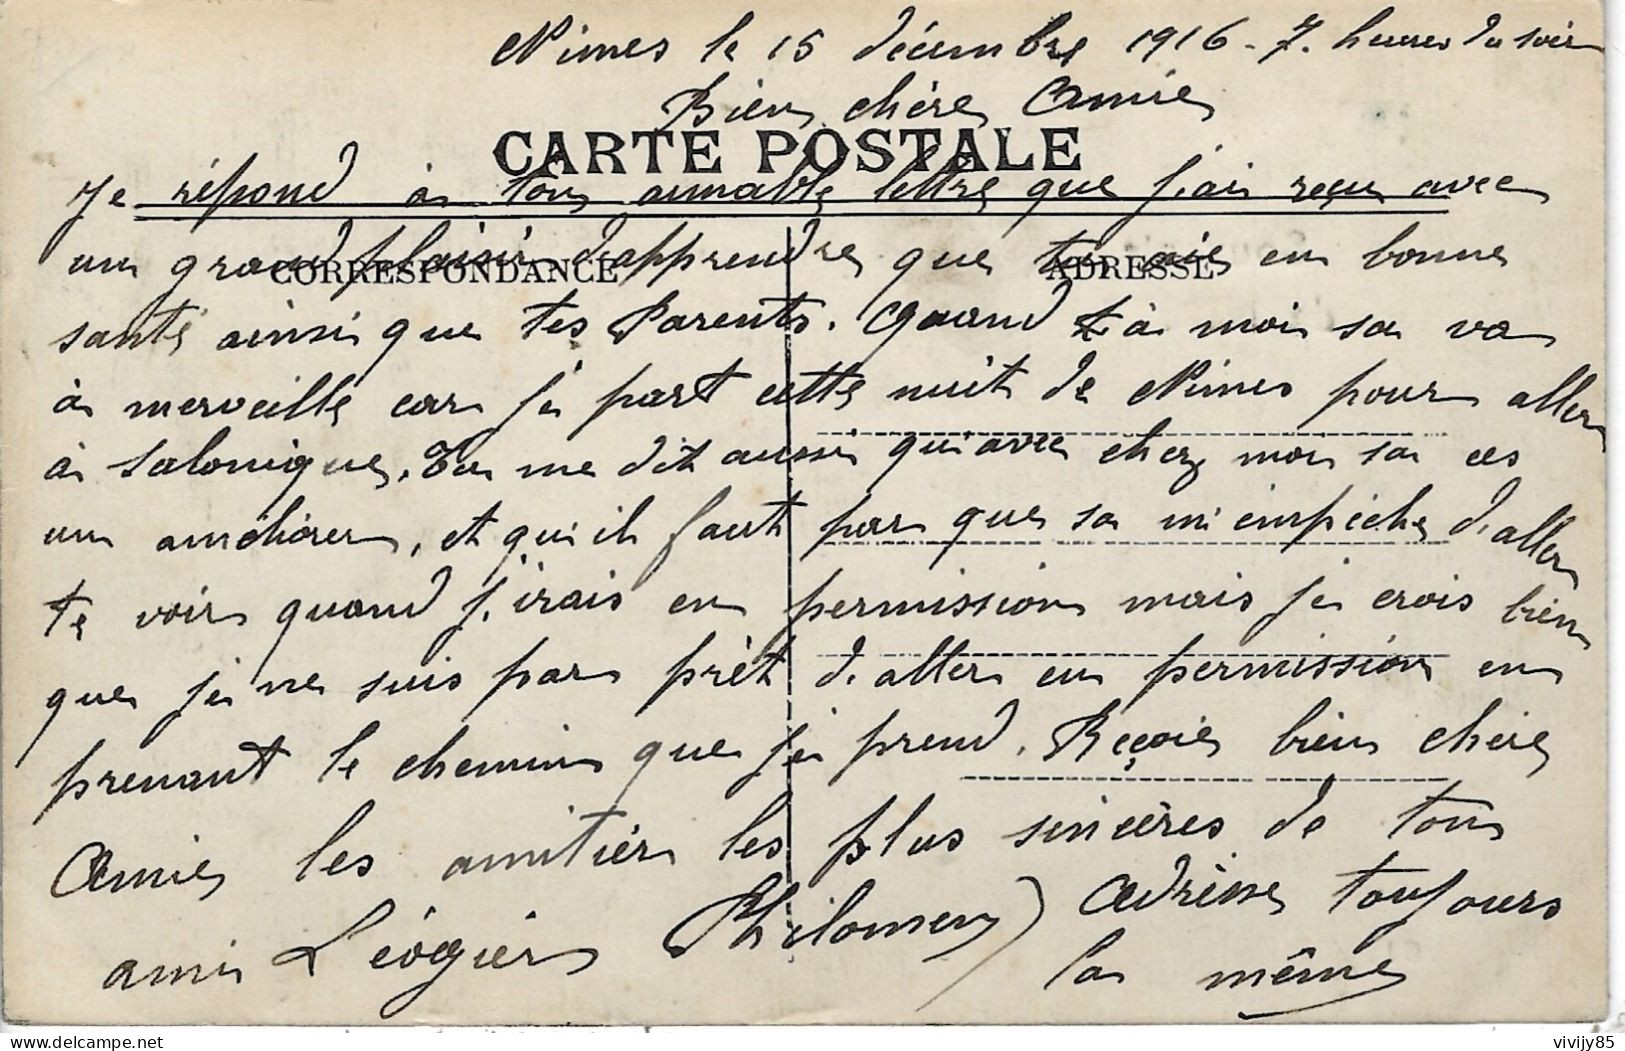 Nimes le 15 décembre 1916 - 7. heures du soir
Bien chére Amie
CARTE POSTALE
Je répond à ton aimable lettre que j,ai reçu avec
un grand plaisir d'apprendre que tu oie en bonne
CORRESPONDANCE ADRESSE
santé ainsi que tes Parents. Quand t à moi sa va
à merveille car je part cette nuit de Nimes pour aller
à Salonique, Tu me dit aussi qui avec chez moi sa ces
un améliorer, et qu'il faut par que sa m'empéche d,aller
te voir quand j,irais en permission mais je crois bien
que je ne suis par prêt d,aller en permission en
prenant le chemin que je prend. Reçoie bien chére
Amie les amitiér les plus sincéres de ton
ami Léogier Philomen) Adrésse toujours
la même
vivijy85